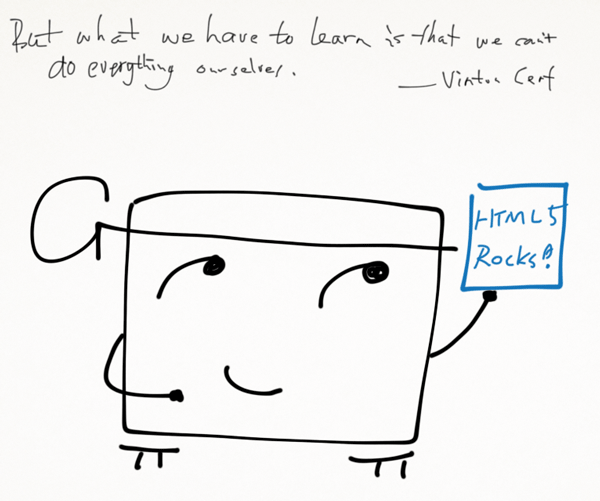 But what we have to learn is that we can't
do everything ourselves.
— Vinton Cerf
HTML5
Rocks!